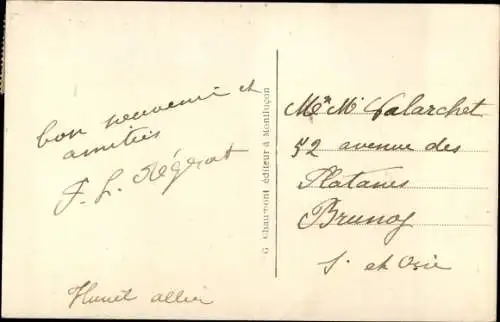 bon souvenir et
amitiés
F. L. Régerat
Huriel allier
G. Chaumont éditeur à Montluçon
Mr Me Galarchet
52 avenue des
Platanes
Brunoy
S. et Oise